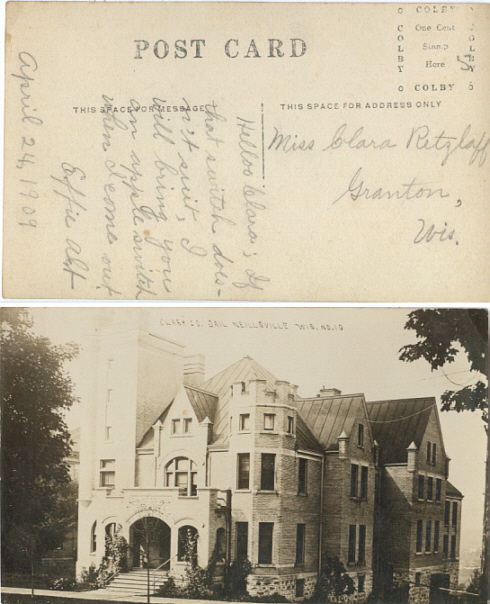 POST CARD
COLBY
One Cent
Stamp
Here
COLBY
COLBY
COLBY
THIS SPACE FOR MESSAGE
THIS SPACE FOR ADDRESS ONLY
April 24, 1909
Hellos Clara; If
that switch does-
n't suit, I
will bring you
an apple switch
when I come out
Effie Alt
Miss Clara Retzlaff
Granton,
Wis.
CLARK CO. JAIL NEILLSVILLE WIS. NO. 10